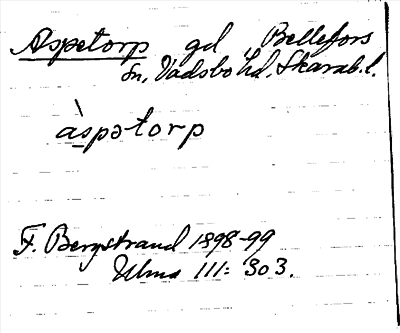 Aspetorp gd, Bellefors
Sn, Vadsbo hd, Skarab. l.
àspətorp
F. Bergstrand 1898-99
Ulma 111: 303.